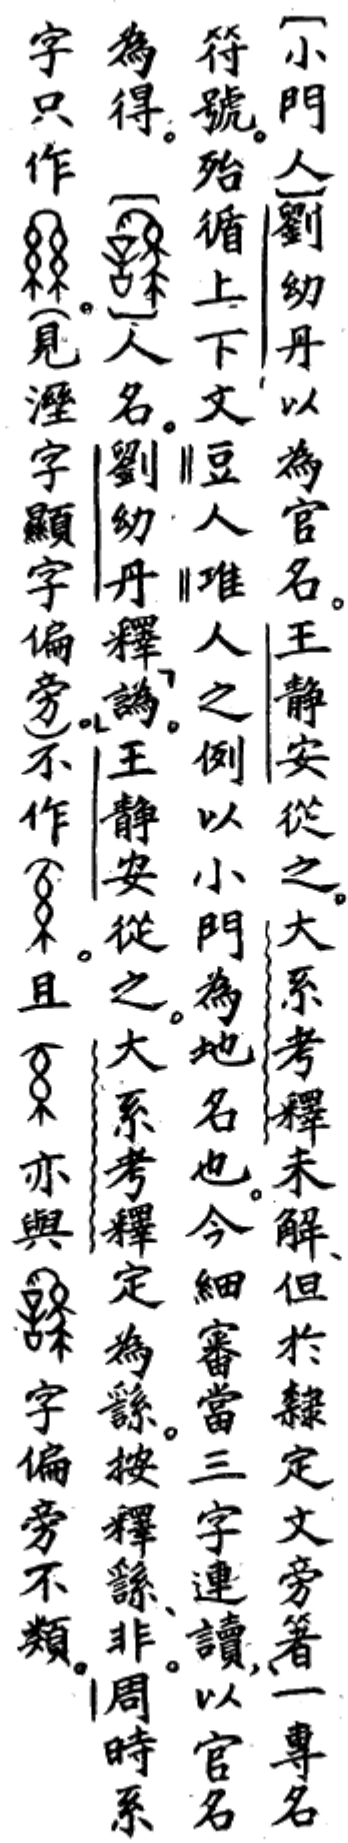 〔小門人〕劉幼丹以為官名。王靜安從之。大系考釋未解、但於隸定文旁箸一專名
符號。殆循上下文豆人琟人之例以小門為地名也。今細審當三字連讀,以官名
為得。〔〕人名。劉幼丹釋「譌」。王靜安從之。大系考釋定為繇。按釋繇、非。周時系
字只作。(見溼字顯字偏旁)。不作。且亦與字偏旁不類。